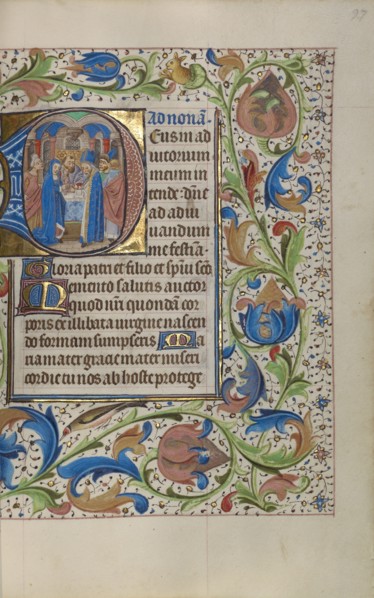 Ad nonā.
Deus in ad
iutorium
meum in
tende: dn̄e
ad adiu
uandum
me festīā.
Gloria patri et filio et sp̄iu sc̄o
Memento salutis auctor
quod nr̄i quondā cor
poris ex illibata uirgine nascen
do formam sumpseris Ma
ria mater gracie mater miseri
cordie tu nos ab hoste protege